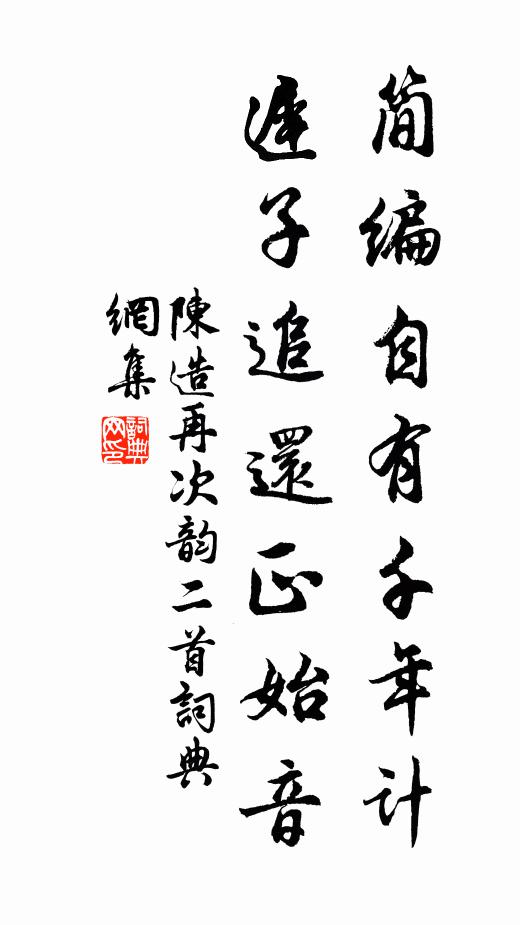 简编自有千年计
遲子追還正始音
陳造再次韵二首詞典
網集
詞典
网印